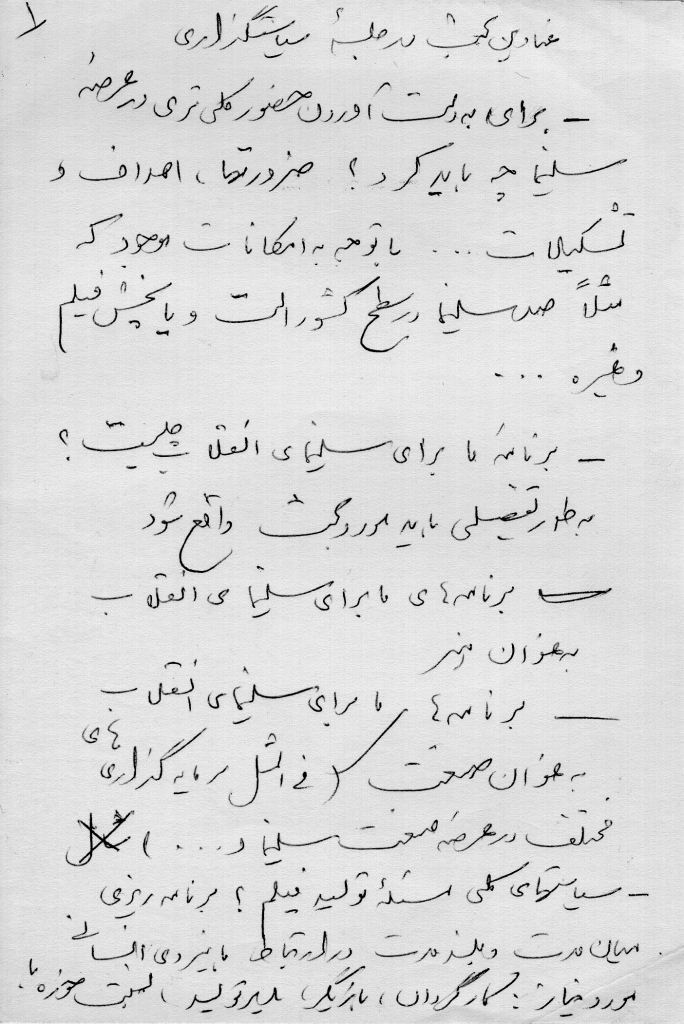 ۱
عناوین بحث در جلسهٔ سیاستگذاری
– برای به دست آوردن حضور کلی تری در عرصه
سینما چه باید کرد؟ ضرورتها، اهداف و
تشکیلات ... با توجه به امکانات موجود که
مثلاً صد سینما در سطح کشور است و یا پخش فیلم
و غیره ...
– برنامه ما برای سینمای انقلاب چیست؟
به طور تفصیلی باید مورد بحث واقع شود
– برنامه های ما برای سینمای انقلاب
به عنوان هنر
– برنامه ها ما برای سینمای انقلاب
به عنوان صنعت (فی المثل سرمایه گذاری های
مختلف در عرصه صنعت سینما و ...)
– سیاستهای کلی مسئلهٔ تولید فیلم؟ برنامه ریزی
میان مدت و بلند مدت در ارتباط با نیروی انسانی
مورد نیاز: کارگردان، بازیگر، مدیر تولید، نسبت حوزه با